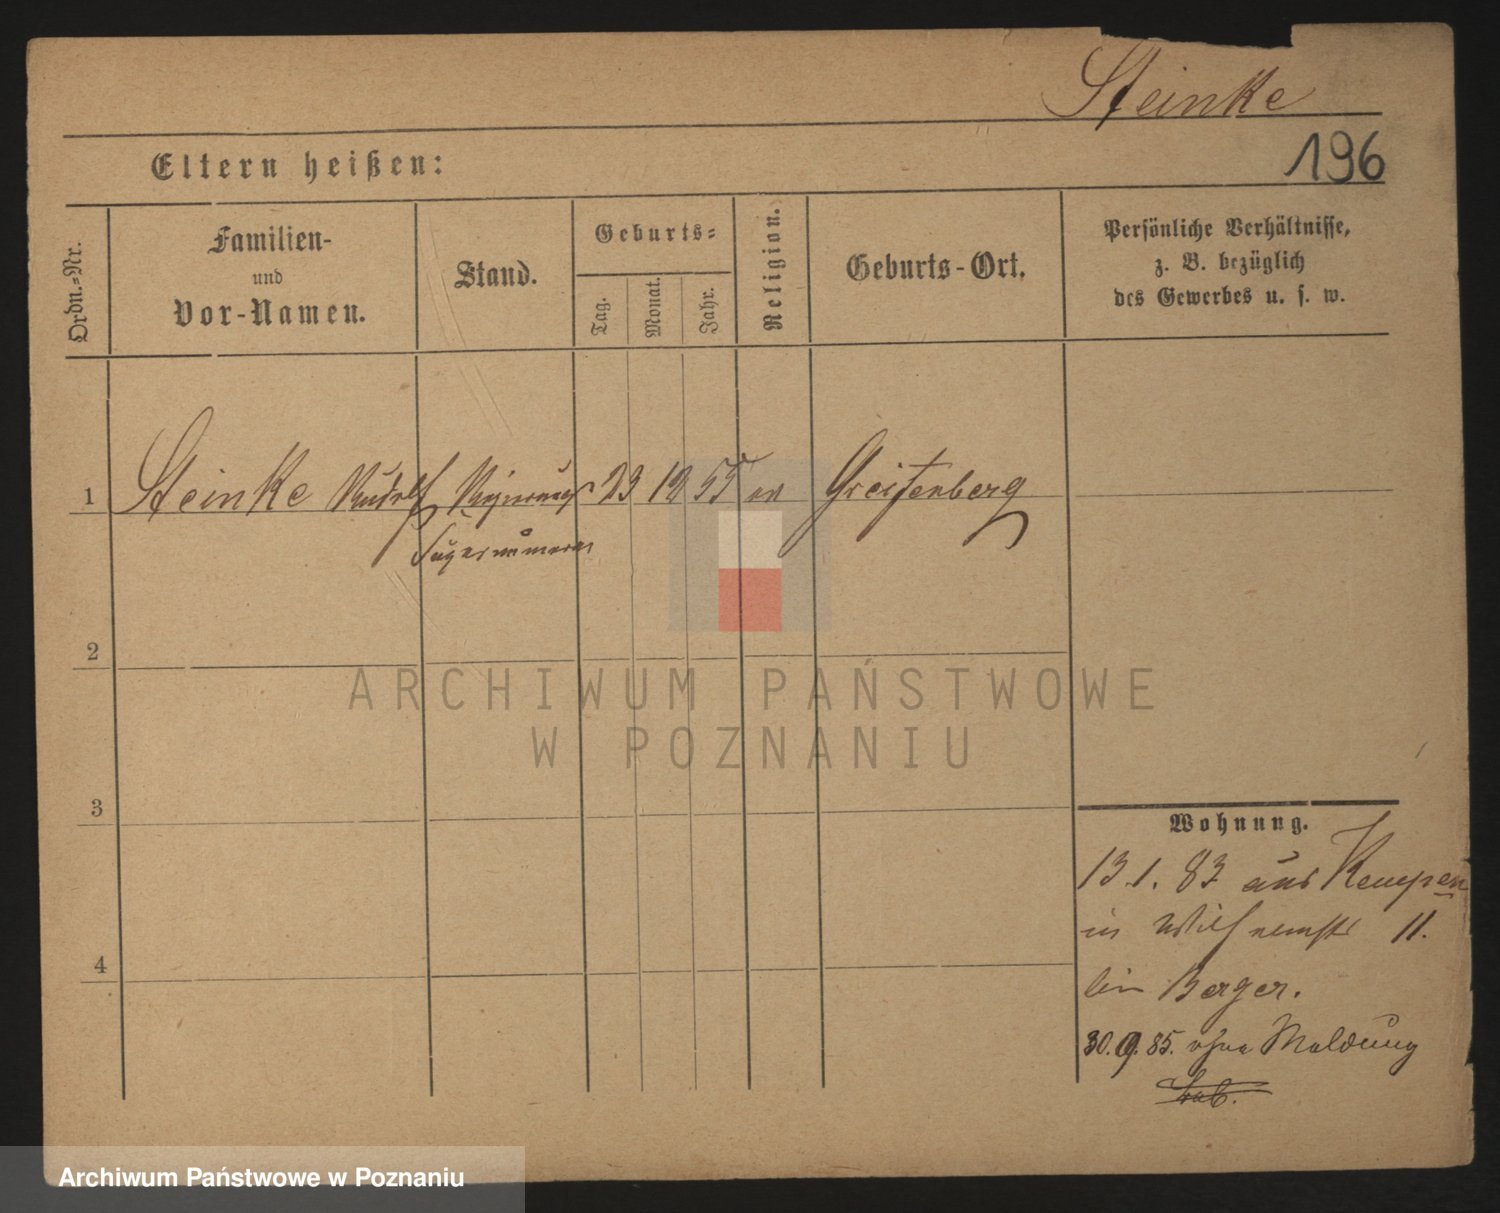 Steinke
196
Eltern heißen:
Ordn.-Nr.
Familien-
und
Vor-Namen.
Stand.
Geburts-
Tag.
Monat.
Jahr.
Religion.
Geburts-Ort.
Persönliche Verhältnisse,
z. B. bezüglich
des Gewerbes u. s. w.
1 Steinke Rudolf 23 12 55 ev Greifenberg
2
ARCHIWUM PAŃSTWOWE
W POZNANIU
3
Wohnung.
13.1. 83 aus Kempen
in Wilhelmstr 11.
bei Berger.
4
30.9.85. ohne Meldung
Archiwum Państwowe w Poznaniu